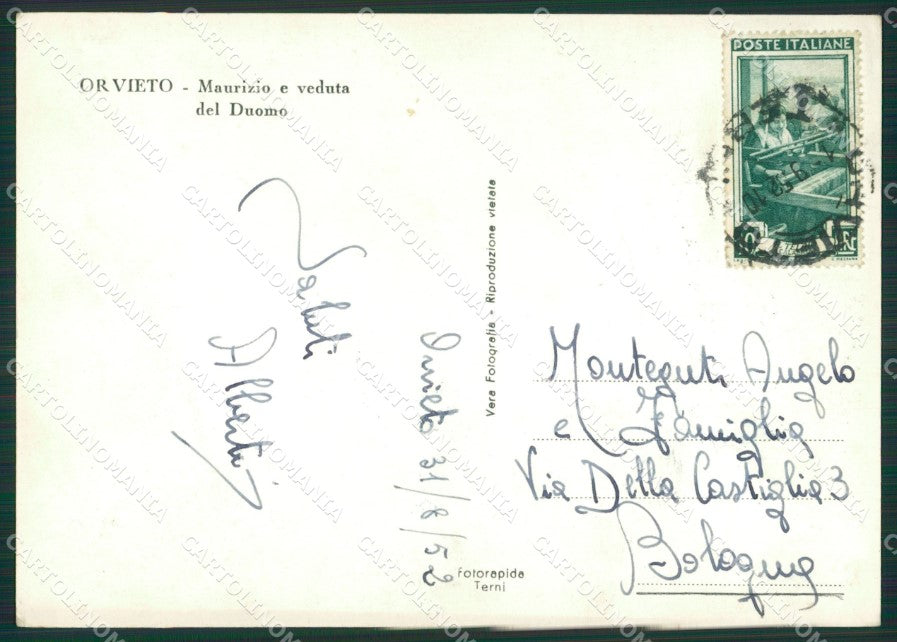 ORVIETO - Maurizio e veduta
del Duomo
POSTE ITALIANE
Saluti
Alberti
Orvieto 31/8/52
Vera Fotografia - Riproduzione vietata
fotorapida
Terni
Montaguti Angelo
e Famiglia
Via Della Castiglia 3
Bologna
CARTOLINOMANIA